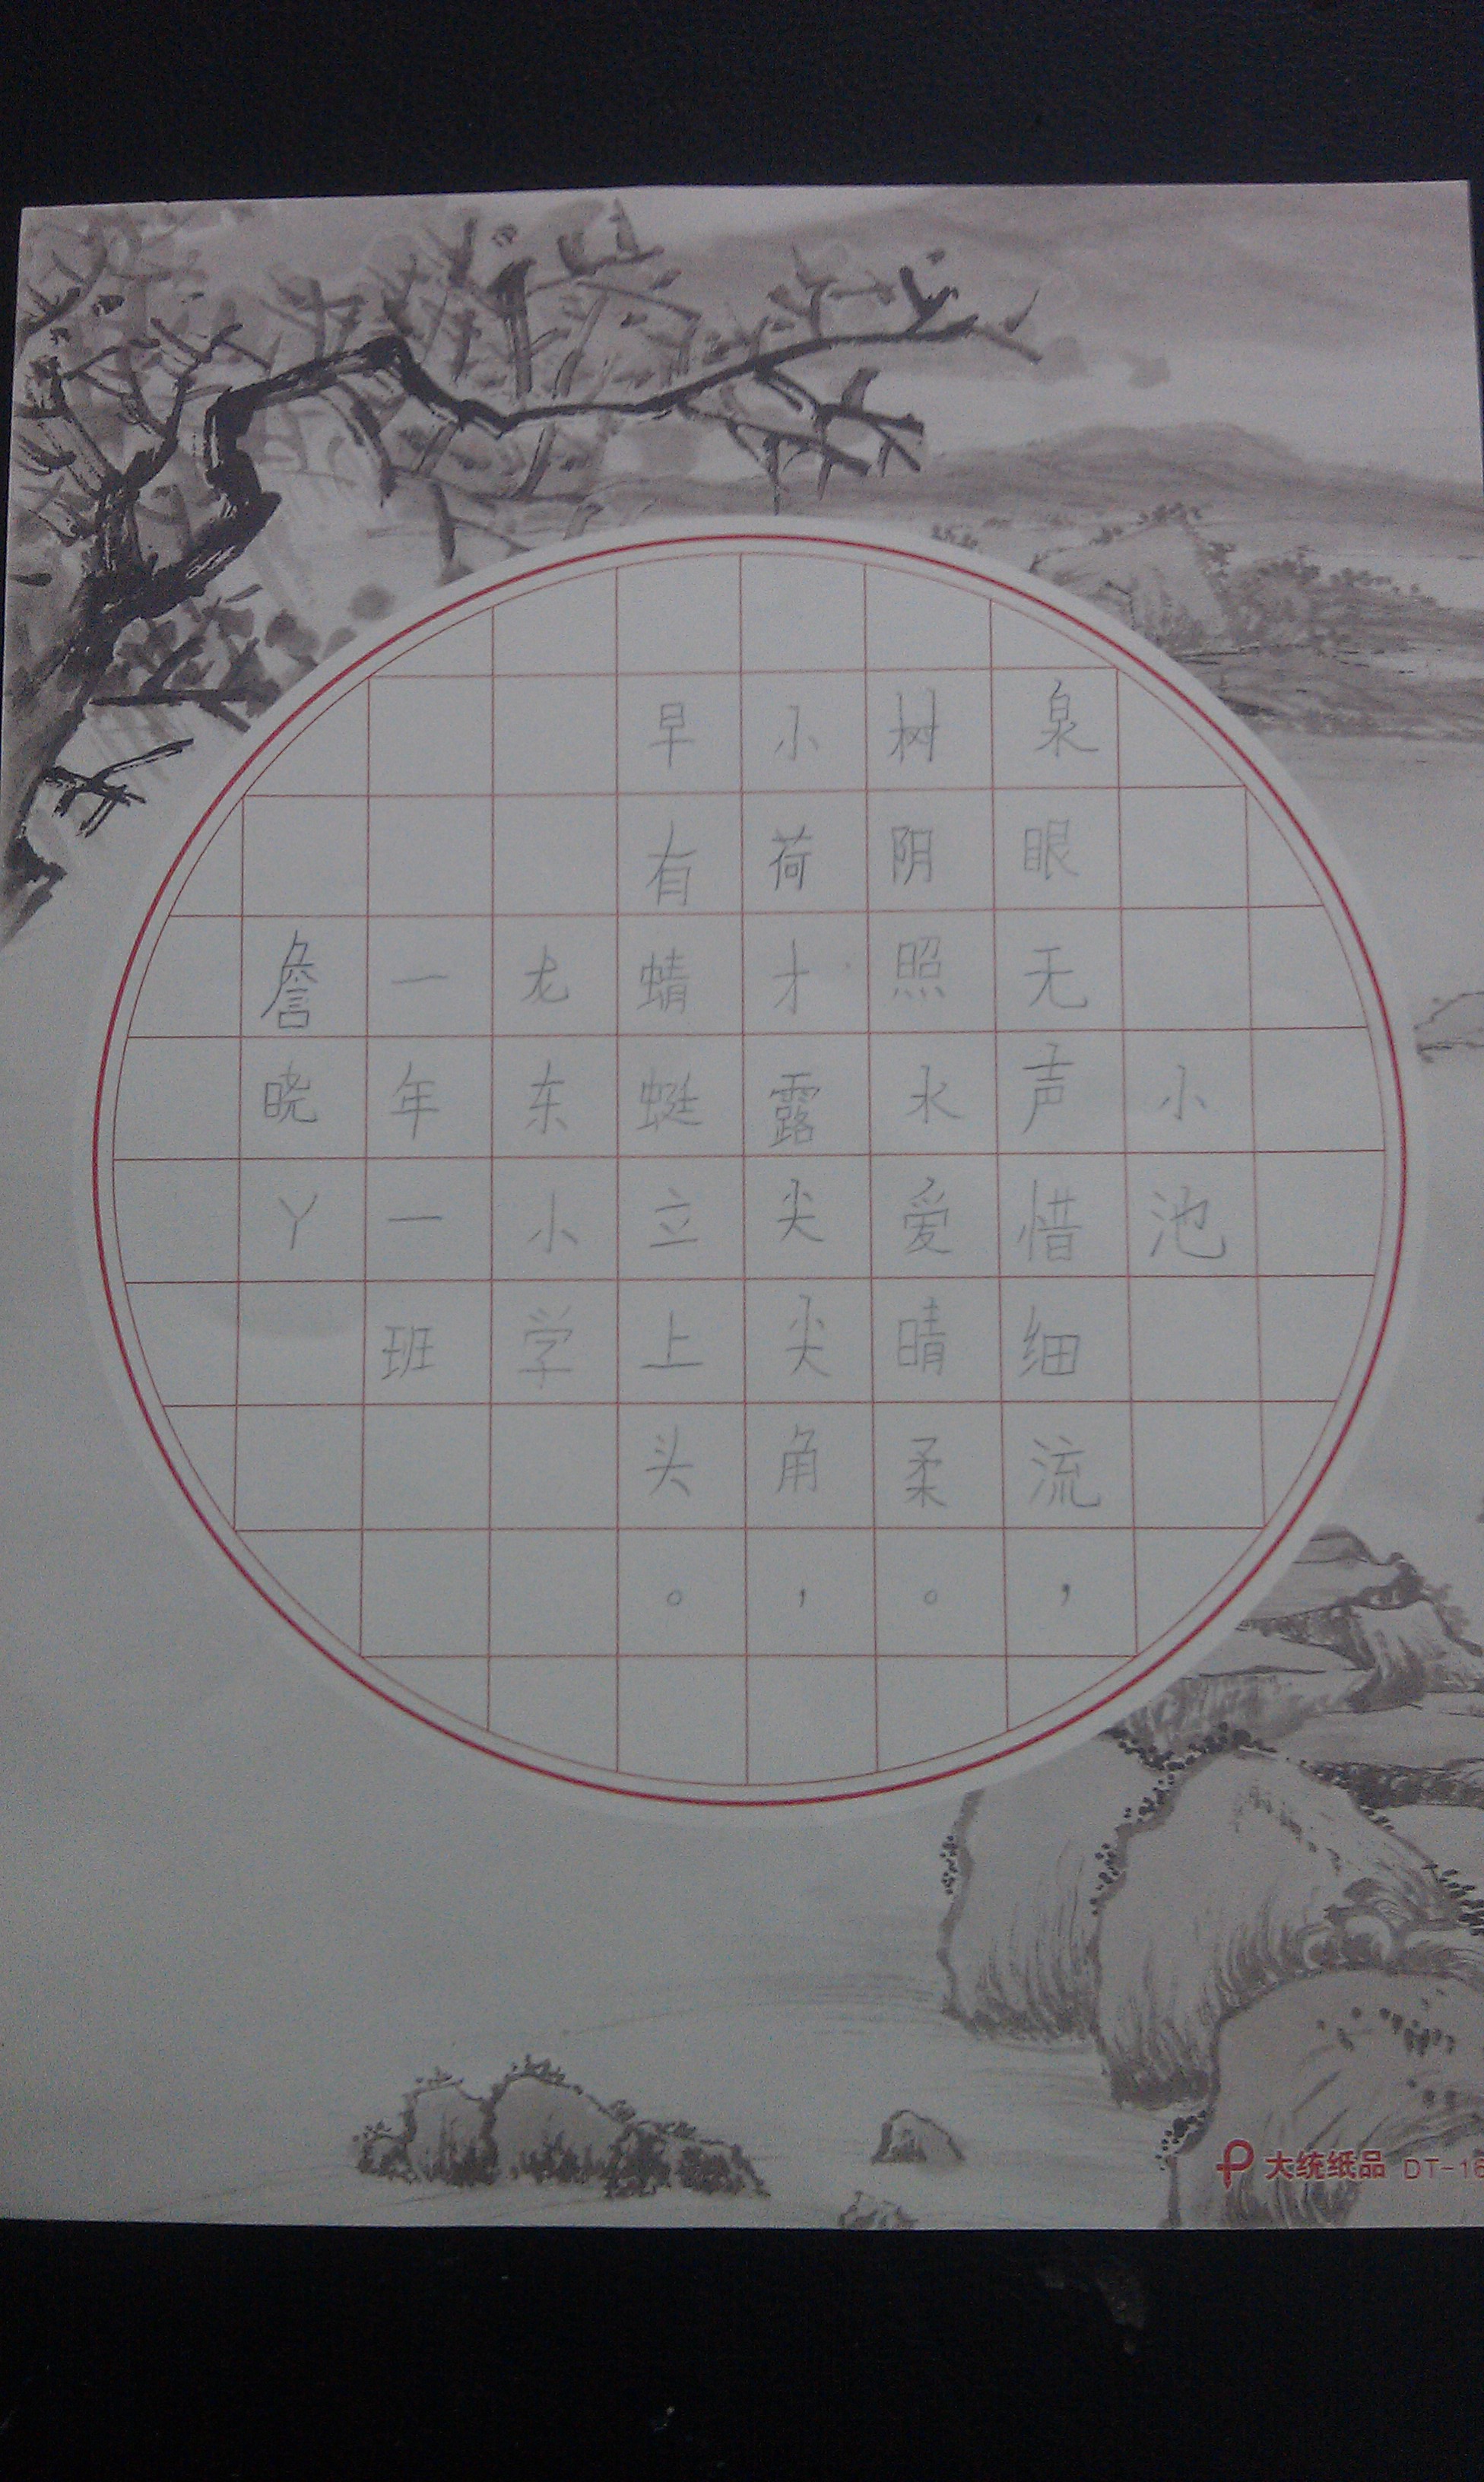 小池
泉眼无声惜细流，
树阴照水爱晴柔。
小荷才露尖尖角，
早有蜻蜓立上头。
龙东小学
一年一班
詹晓丫
大统纸品 DT-16